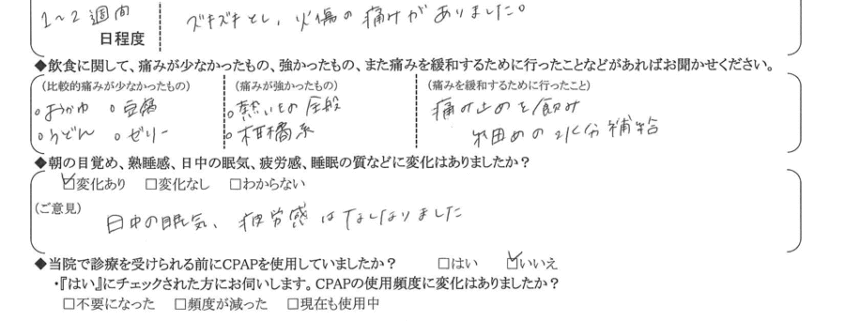 1〜2週間
日程度
ズキズキとし、火傷の痛みがありました。
◆飲食に関して、痛みが少なかったもの、強かったもの、また痛みを緩和するために行ったことなどがあればお聞かせください。
(比較的痛みが少なかったもの)
。おかゆ 。豆腐
。うどん 。ゼリー
(痛みが強かったもの)
。熱いもの全般
。柑橘系
(痛みを緩和するために行ったこと)
痛み止めを飲み
水分補給
◆朝の目覚め、熟睡感、日中の眠気、疲労感、睡眠の質などに変化はありましたか?
☑変化あり □変化なし □わからない
(ご意見)
日中の眠気、疲労感はなくなりました
◆当院で診療を受けられる前にCPAPを使用していましたか? □はい ☑いいえ
・『はい』にチェックされた方にお伺いします。CPAPの使用頻度に変化はありましたか?
□不要になった □頻度が減った □現在も使用中